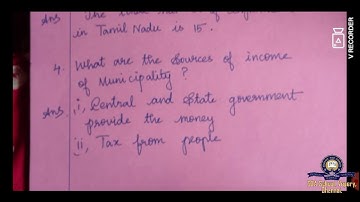 Ans
in Tamil Nadu is 15.
4. What are the Sources of income
of Municipality?
Ans i, Central and State government
provide the money
ii, Tax from people
V RECORDER